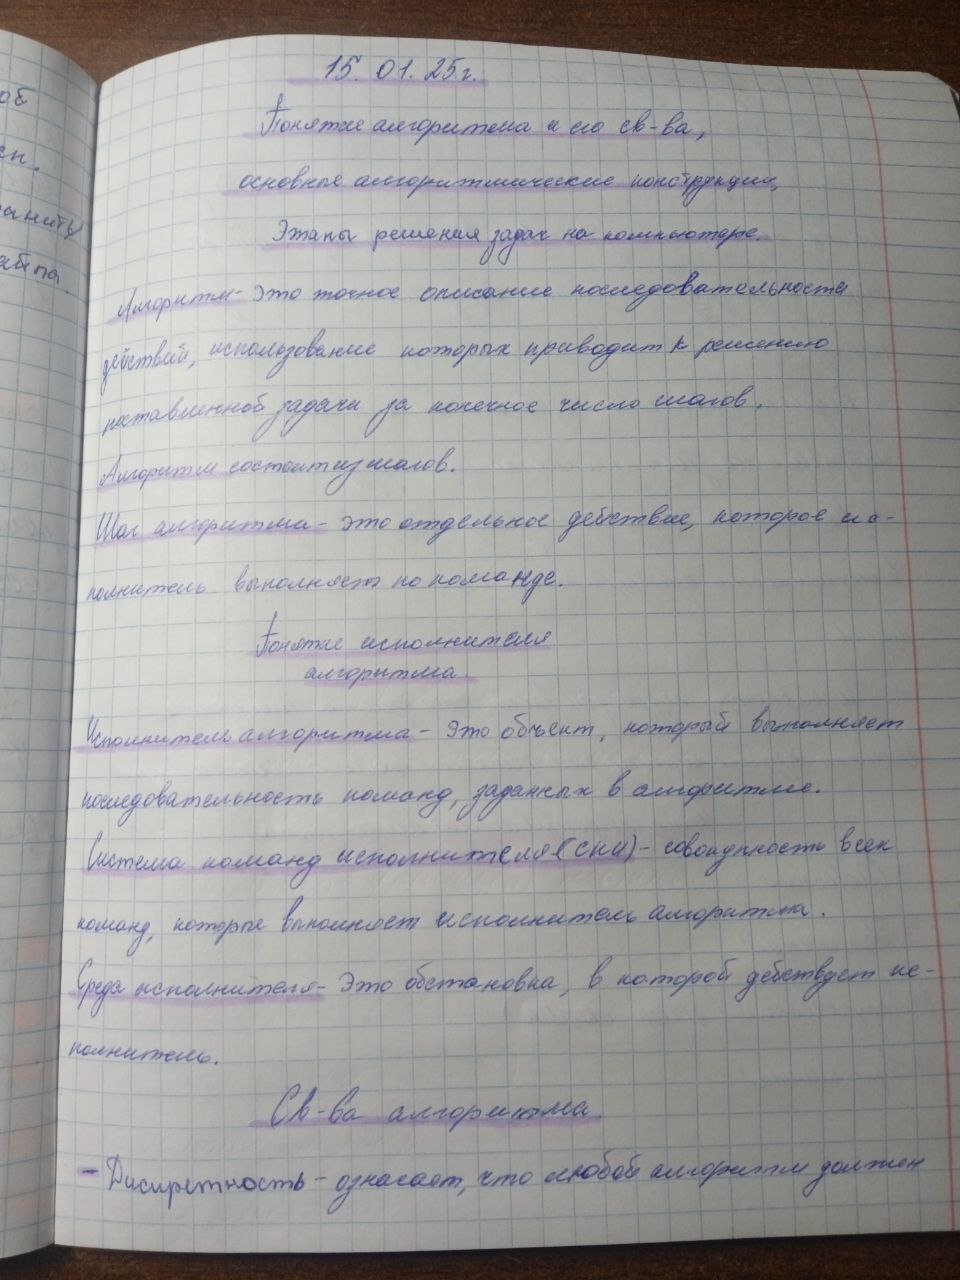 15. 01. 25г.
Понятие алгоритма и его св-ва,
основные алгоритмические конструкции,
Этапы решения задач на компьютере.
Алгоритм - это точное описание последовательности
действий, использование которых приводит к решению
поставленной задачи за конечное число шагов.
Алгоритм состоит из шагов.
Шаг алгоритма - это отдельное действие, которое ис-
полнитель выполняет по команде.
Понятие исполнителя
алгоритма.
Исполнитель алгоритма - это объект, который выполняет
последовательность команд, заданных в алгоритме.
Система команд исполнителя (СКИ) - совокупность всех
команд, которые выполняет исполнитель алгоритма.
Среда исполнителя - это обстановка, в которой действует ис-
полнитель.
Св-ва алгоритма.
- Дискретность - означает, что любой алгоритм должен